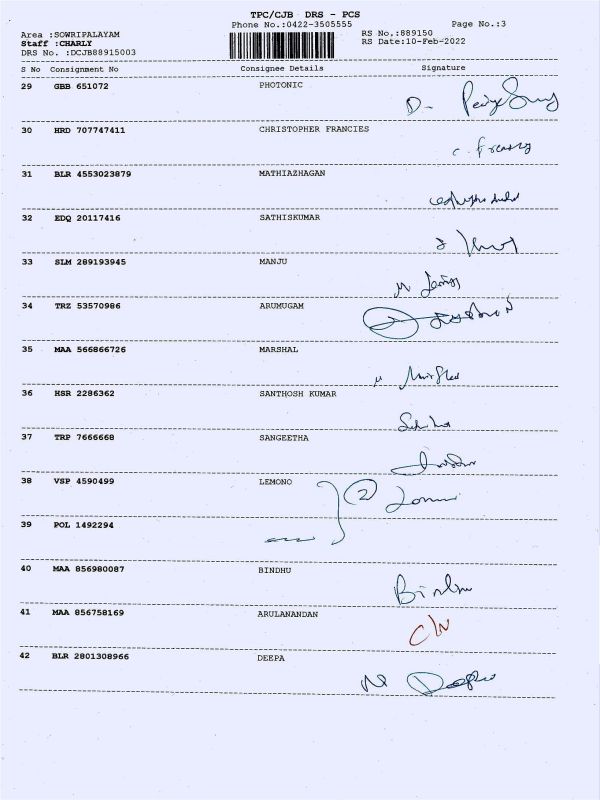 TPC/CJB DRS - PCS
Phone No.:0422-3505555 Page No.:3
Area :SOWRIPALAYAM RS No.:889150
Staff :CHARLY RS Date:10-Feb-2022
DRS No. :DCJB88915003
S No Consignment No Consignee Details Signature
29 GBB 651072 PHOTONIC
D-
30 HRD 707747411 CHRISTOPHER FRANCIES
31 BLR 4553023879 MATHIAZHAGAN
32 EDQ 20117416 SATHISKUMAR
33 SLM 289193945 MANJU
34 TRZ 53570986 ARUMUGAM
35 MAA 566866726 MARSHAL
36 HSR 2286362 SANTHOSH KUMAR
37 TRP 7666668 SANGEETHA
38 VSP 4590499 LEMONO
2
39 POL 1492294
40 MAA 856980087 BINDHU
41 MAA 856758169 ARULANANDAN
42 BLR 2801308966 DEEPA